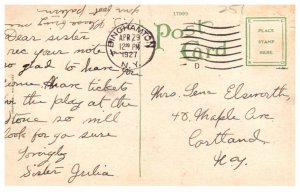 17069
251
BINGHAMTON
APR 29
12 30 PM
1927
N.Y.
POST CARD
PLACE
STAMP
HERE
Dear sister
rec your note
so glad to have you
come. Have tickets
for the play at the
Stone so will
look for you sure
Lovingly
Sister Julia
Mrs. Gene Elsworth,
40. Maple Ave
Cortland,
N.Y.